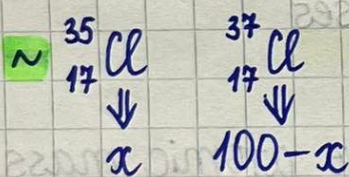 ~ ³⁵₁₇Cl ³⁷₁₇Cl
⇓ ⇓
x 100-x